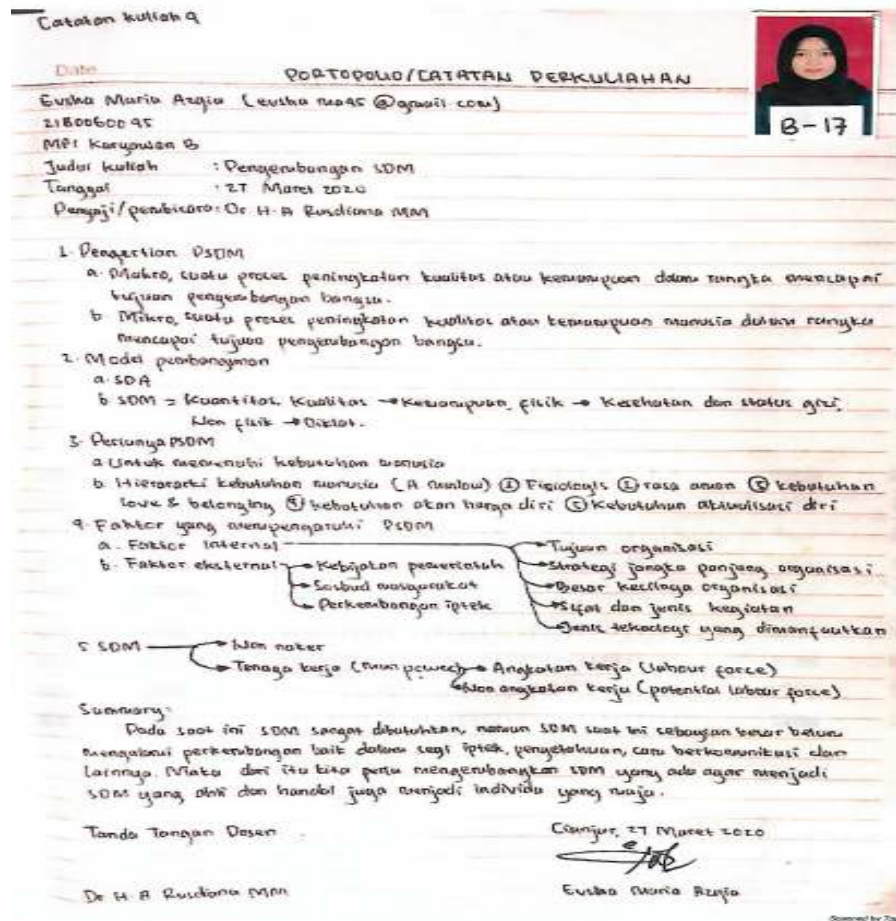 Catatan kuliah 9
Date
PORTOPOLIO/CATATAN PERKULIAHAN
B-17
Evsha Maria Azqia
2180060095
MPI Karyawan B
Judul kuliah : Pengembangan SDM
Tanggal : 27 Maret 2020
Pengaji/pembicara: Dr. H. A Rusdiana MM
1. Pengertian PSDM
a. Makro, suatu proses peningkatan kualitas atau kemampuan dalam rangka mencapai
tujuan pengembangan bangsa.
b. Mikro, suatu proses peningkatan kualitas atau kemampuan manusia dalam rangka
mencapai tujuan pengembangan bangsa.
2. Model pembangunan
a. SDA
b. SDM = Kuantitas, Kualitas → Kemampuan, fisik → Kesehatan dan status gizi,
Non fisik → Diklat.
3. Perlunya PSDM
a. Untuk memenuhi kebutuhan manusia
b. Hierararki kebutuhan manusia (A maslow) ① Fisiologis ② rasa aman ③ kebutuhan
love & belonging ④ kebutuhan akan harga diri ⑤ Kebutuhan aktualisasi diri
4. Faktor yang mempengaruhi PSDM
a. Faktor internal → Tujuan organisasi
b. Faktor eksternal → Kebijakan pemerintah → Strategi jangka panjang organisasi
→ Sosbud masyarakat → Besar kecilnya organisasi
→ Perkembangan iptek → Sifat dan jenis kegiatan
→ Jenis teknologi yang dimanfaatkan
5. SDM → Non naker
→ Tenaga kerja (man power) → Angkatan kerja (labour force)
→ Non angkatan kerja (potential labour force)
Summary:
Pada saat ini SDM sangat dibutuhkan, namun SDM saat ini sebagian besar belum
mengalami perkembangan baik dalam segi iptek, pengetahuan, cara berkomunikasi dan
lainnya. Maka dari itu kita perlu mengembangkan SDM yang ada agar menjadi
SDM yang ahli dan handal juga menjadi individu yang maju.
Tanda Tangan Dosen
Cianjur, 27 Maret 2020
Dr H. A Rusdiana MM
Evsha Maria Azqia
Scanned by